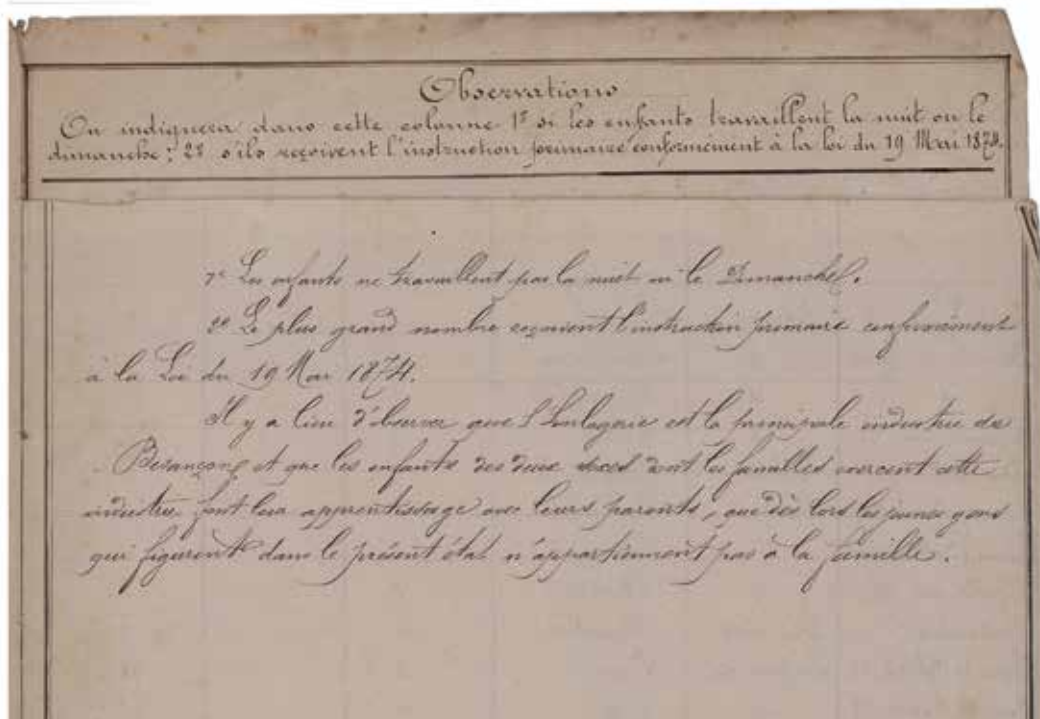 Observations
On indiquera dans cette colonne 1º si les enfants travaillent la nuit ou le
dimanche ; 2º s'ils reçoivent l'instruction primaire conformément à la loi du 19 Mai 1874.
1º Les enfants ne travaillent pas la nuit ni le Dimanche.
2º Le plus grand nombre reçoivent l'instruction primaire conformément
à la Loi du 19 Mai 1874.
Il y a lieu d'observer que l'horlogerie est la principale industrie de
Besançon, et que les enfants des deux sexes dont les familles exercent cette
industrie font leur apprentissage avec leurs parents, que dès lors les jeunes gens
qui figurent dans le présent état n'appartiennent pas à la famille.